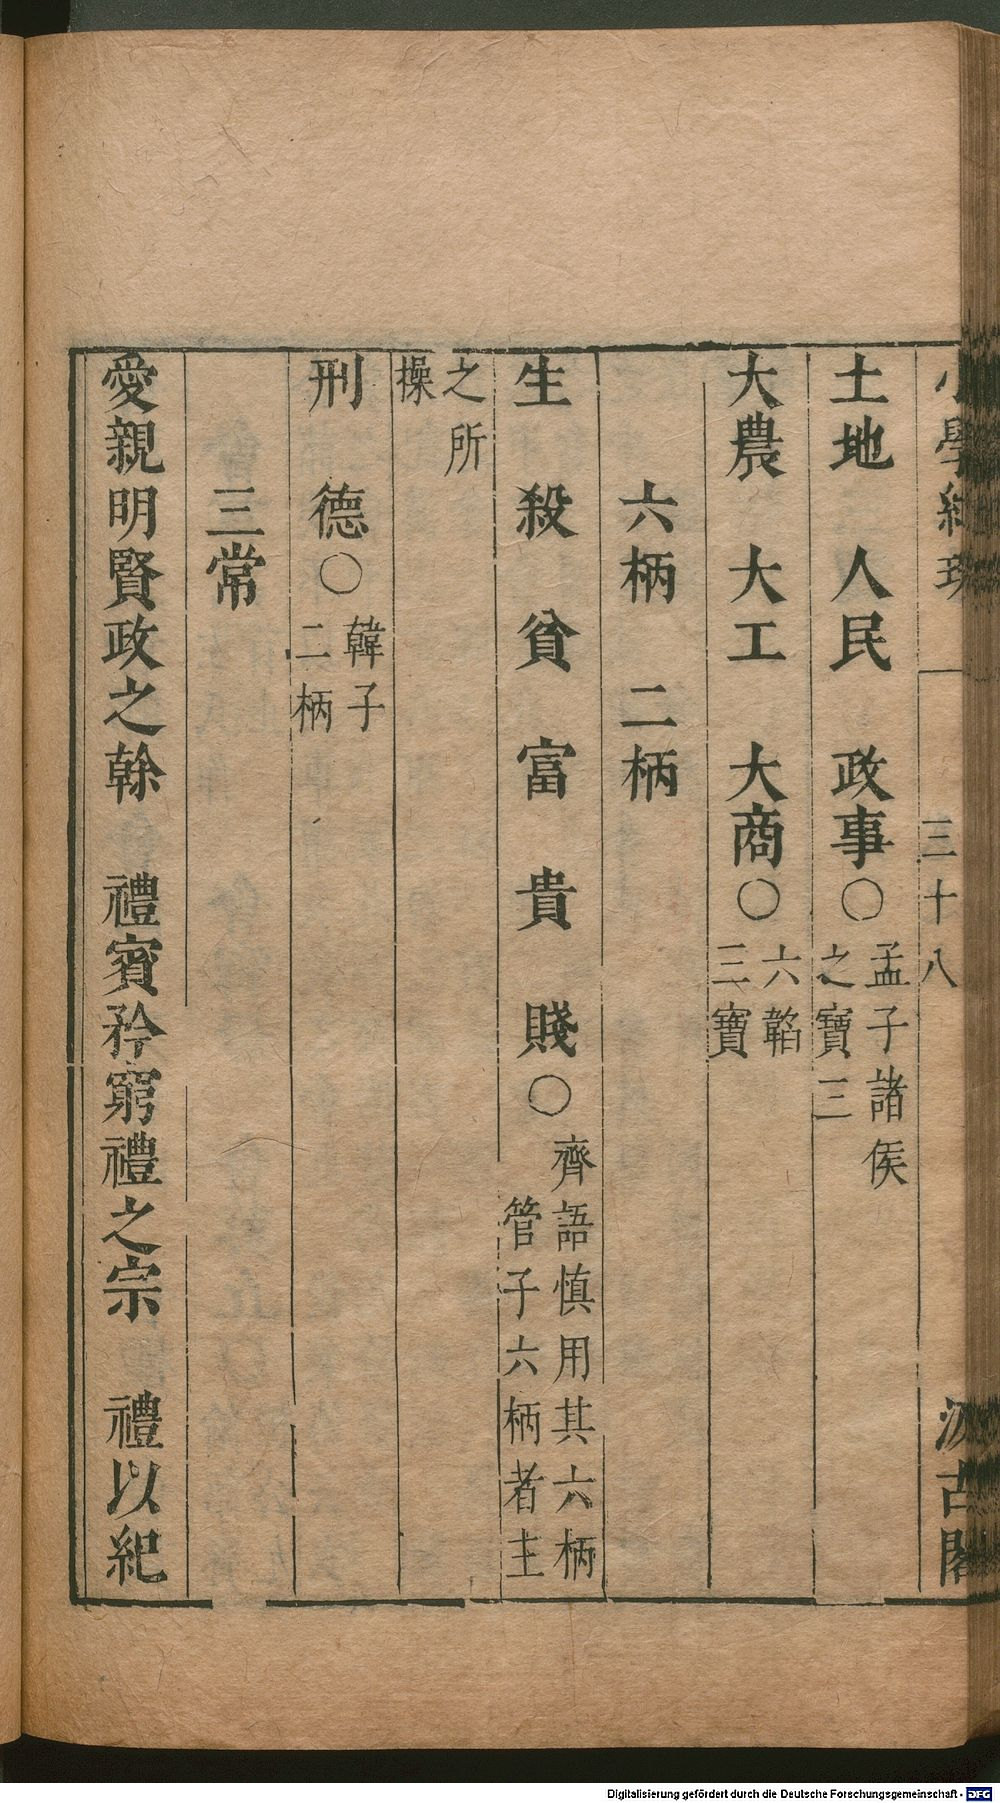 小學紺珠 三十八 汲古閣
土地 人民 政事○孟子諸侯之寶三
大農 大工 大商○六韜三寶
六柄 二柄
生 殺 貧 富 貴 賤○齊語慎用其六柄管子六柄者主
之所操
刑 德○韓子二柄
三常
愛親明賢政之榦 禮賓矜窮禮之宗 禮以紀
Digitalisierung gefördert durch die Deutsche Forschungsgemeinschaft - DFG